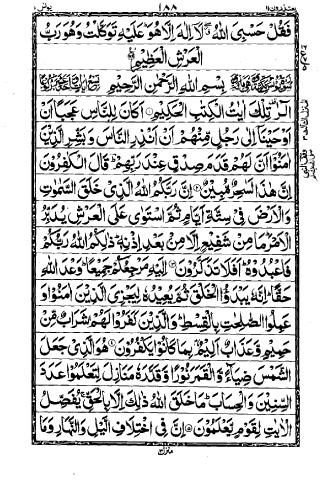 يعتذرون ١١ ١٨٨ يونس ١٠
فَقُلْ حَسْبِيَ اللّٰهُ لَاۤ اِلٰهَ اِلَّا هُوَ عَلَيْهِ تَوَكَّلْتُ وَهُوَ رَبُّ
الْعَرْشِ الْعَظِيْمِ
بِسْمِ اللّٰهِ الرَّحْمٰنِ الرَّحِيْمِ
الٓرٰ تِلْكَ اٰيٰتُ الْكِتٰبِ الْحَكِيْمِ اَكَانَ لِلنَّاسِ عَجَبًا اَنْ
اَوْحَيْنَاۤ اِلٰى رَجُلٍ مِّنْهُمْ اَنْ اَنْذِرِ النَّاسَ وَبَشِّرِ الَّذِيْنَ
اٰمَنُوْۤا اَنَّ لَهُمْ قَدَمَ صِدْقٍ عِنْدَ رَبِّهِمْ قَالَ الْكٰفِرُوْنَ
اِنَّ هٰذَا لَسٰحِرٌ مُّبِيْنٌ اِنَّ رَبَّكُمُ اللّٰهُ الَّذِيْ خَلَقَ السَّمٰوٰتِ
وَالْاَرْضَ فِيْ سِتَّةِ اَيَّامٍ ثُمَّ اسْتَوٰى عَلَى الْعَرْشِ يُدَبِّرُ
الْاَمْرَ مَا مِنْ شَفِيْعٍ اِلَّا مِنْۢ بَعْدِ اِذْنِهٖ ذٰلِكُمُ اللّٰهُ رَبُّكُمْ
فَاعْبُدُوْهُ اَفَلَا تَذَكَّرُوْنَ اِلَيْهِ مَرْجِعُكُمْ جَمِيْعًا وَعْدَ اللّٰهِ
حَقًّا اِنَّهٗ يَبْدَؤُا الْخَلْقَ ثُمَّ يُعِيْدُهٗ لِيَجْزِيَ الَّذِيْنَ اٰمَنُوْا وَ
عَمِلُوا الصّٰلِحٰتِ بِالْقِسْطِ وَالَّذِيْنَ كَفَرُوْا لَهُمْ شَرَابٌ مِّنْ
حَمِيْمٍ وَّعَذَابٌ اَلِيْمٌۢ بِمَا كَانُوْا يَكْفُرُوْنَ هُوَ الَّذِيْ جَعَلَ
الشَّمْسَ ضِيَآءً وَّالْقَمَرَ نُوْرًا وَّقَدَّرَهٗ مَنَازِلَ لِتَعْلَمُوْا عَدَدَ
السِّنِيْنَ وَالْحِسَابَ مَا خَلَقَ اللّٰهُ ذٰلِكَ اِلَّا بِالْحَقِّ يُفَصِّلُ
الْاٰيٰتِ لِقَوْمٍ يَّعْلَمُوْنَ اِنَّ فِي اخْتِلَافِ الَّيْلِ وَالنَّهَارِ وَمَا